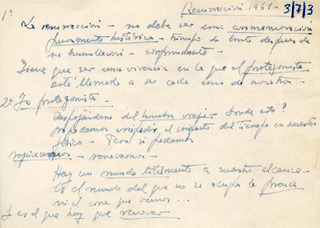 Resurrección 1951- 3/7/3
1º
La resurrección - no debe ser una conmemoración
puramente histórica - tiempo de tanto después de
su humillación -
Tiene que ser una vivencia en la que el protagonista
esté llamado a ser cada uno de nosotros -
2º - Yo protagonista -
Despojándome del hombre viejo - donde está?
no podemos romper el impacto del tiempo en nuestro
físico - Pero si podemos
- renovarnos -
Hay un mundo totalmente a nuestro alcance -
Es el mundo del que no se ocupa la prensa
ni el cine que vemos ...
Y es el que hay que renovar